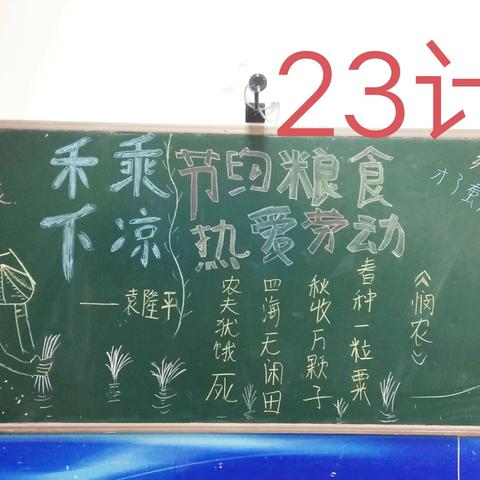 23计
禾乘
下凉
——袁隆平
节约粮食
热爱劳动
《悯农》
春种一粒粟
秋收万颗子
四海无闲田
农夫犹饿死